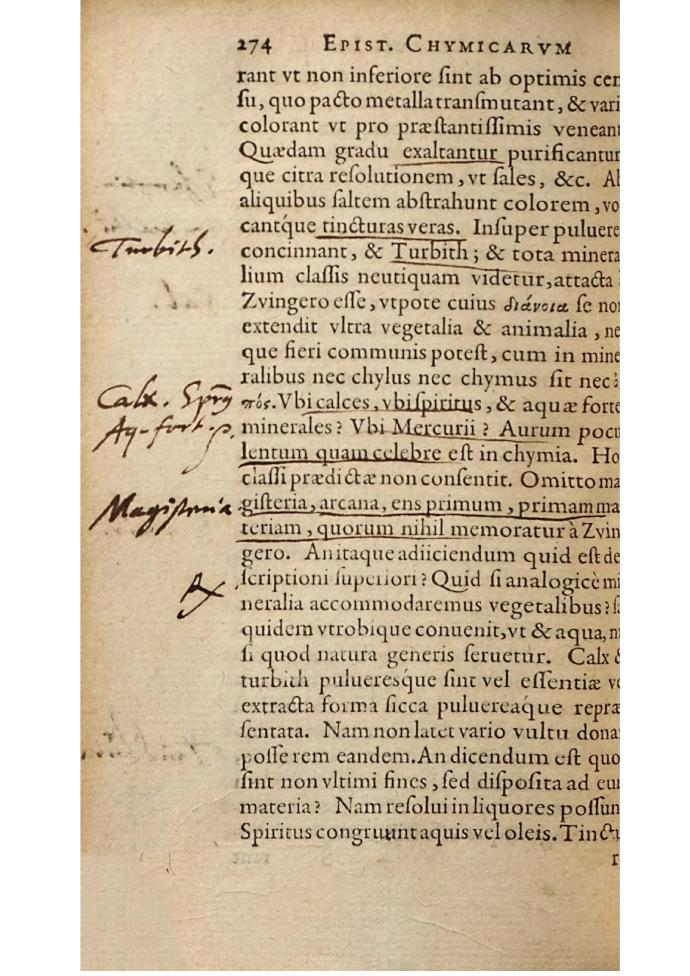 274 EPIST. CHYMICARVM
rant vt non inferiore ſint ab optimis cen
ſu, quo pacto metalla tranſmutant, & vari
colorant vt pro præſtantiſſimis veneant
Quædam gradu exaltantur purificantur
que citra reſolutionem, vt ſales, &c. Al
aliquibus ſaltem abſtrahunt colorem, vo
cantq́ue tincturas veras. Inſuper puluere
Turbith.
concinnant, & Turbith; & tota minera
lium claſſis neutiquam videtur, attacta
Zvingero eſſe, vtpote cuius διάνοια ſe no
extendit vltra vegetalia & animalia, ne
que fieri communis poteſt, cum in mine
ralibus nec chylus nec chymus ſit nec
Calx.
πός. Vbi calces, vbi ſpiritus, & aquæ forte
Aq-fort.
minerales? Vbi Mercurii? Aurum pocu
lentum quam celebre eſt in chymia. Ho
claſſi prædictæ non conſentit. Omitto ma
Magisteria
giſteria, arcana, ens primum, primam ma
teriam, quorum nihil memoratur à Zvin
gero. An itaque adiiciendum quid eſt de
ſcriptioni ſuperiori? Quid ſi analogicè mi
neralia accommodaremus vegetalibus? ſ
quidem vtrobique conuenit, vt & aqua, n
ſi quod natura generis ſeruetur. Calx &
turbith puluereſque ſint vel eſſentiæ v
extracta forma ſicca puluereaque repræ
ſentata. Nam non latet vario vultu dona
poſſe rem eandem. An dicendum eſt quo
ſint non vltimi fines, ſed diſpoſita ad eu
materia? Nam reſolui in liquores poſſun
Spiritus congruunt aquis vel oleis. Tinctu
r